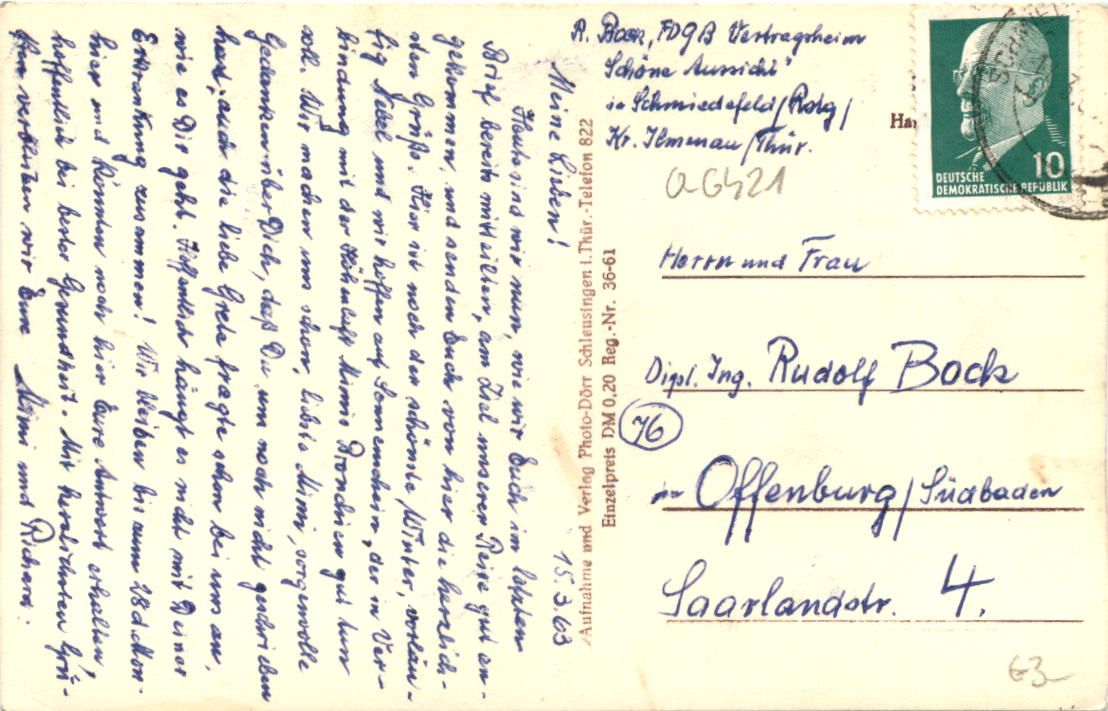 R. Bock, FDGB Vertragsheim
"Schöne Aussicht"
in Schmiedefeld/Rstg/
Kr. Ilmenau/Thür.
a G421
DEUTSCHE
DEMOKRATISCHE REPUBLIK
10
Herrn und Frau
Dipl. Ing. Rudolf Bock
76
in Offenburg/Südbaden
Saarlandstr. 4.
63
Aufnahme und Verlag Photo-Dörr Schleusingen i. Thür.-Telefon 822
Einzelpreis DM 0,20 Reg.-Nr. 36-61
15.3.63
Meine Lieben!
Heute sind wir nun, wie wir Euch im letzten
Brief bereits mitteilten, am Ziel unserer Reise gut an-
gekommen, und senden Euch von hier die herzlich-
sten Grüße. Hier ist noch der schönste Winter, vorläu-
fig Nebel und wir hoffen auf Sonnenschein, der in Ver-
bindung mit der Höhenluft Mimis Bronchien gut tun
soll. Wir machen uns schon, liebste Mimi, sorgenvolle
Gedanken über Dich, daß Du uns noch nicht geschrieben
hast, auch die liebe Grete fragte schon bei uns an,
wie es Dir geht. Hoffentlich hängt es nicht mit Deiner
Erkrankung zusammen! Wir bleiben bis zum 28. d. Mon.
hier und könnten noch hier Eure Antwort erhalten,
hoffentlich bei bester Gesundheit. Mit herzlichsten Grü-
ßen verbleiben wir Eure Mimi und Richard.